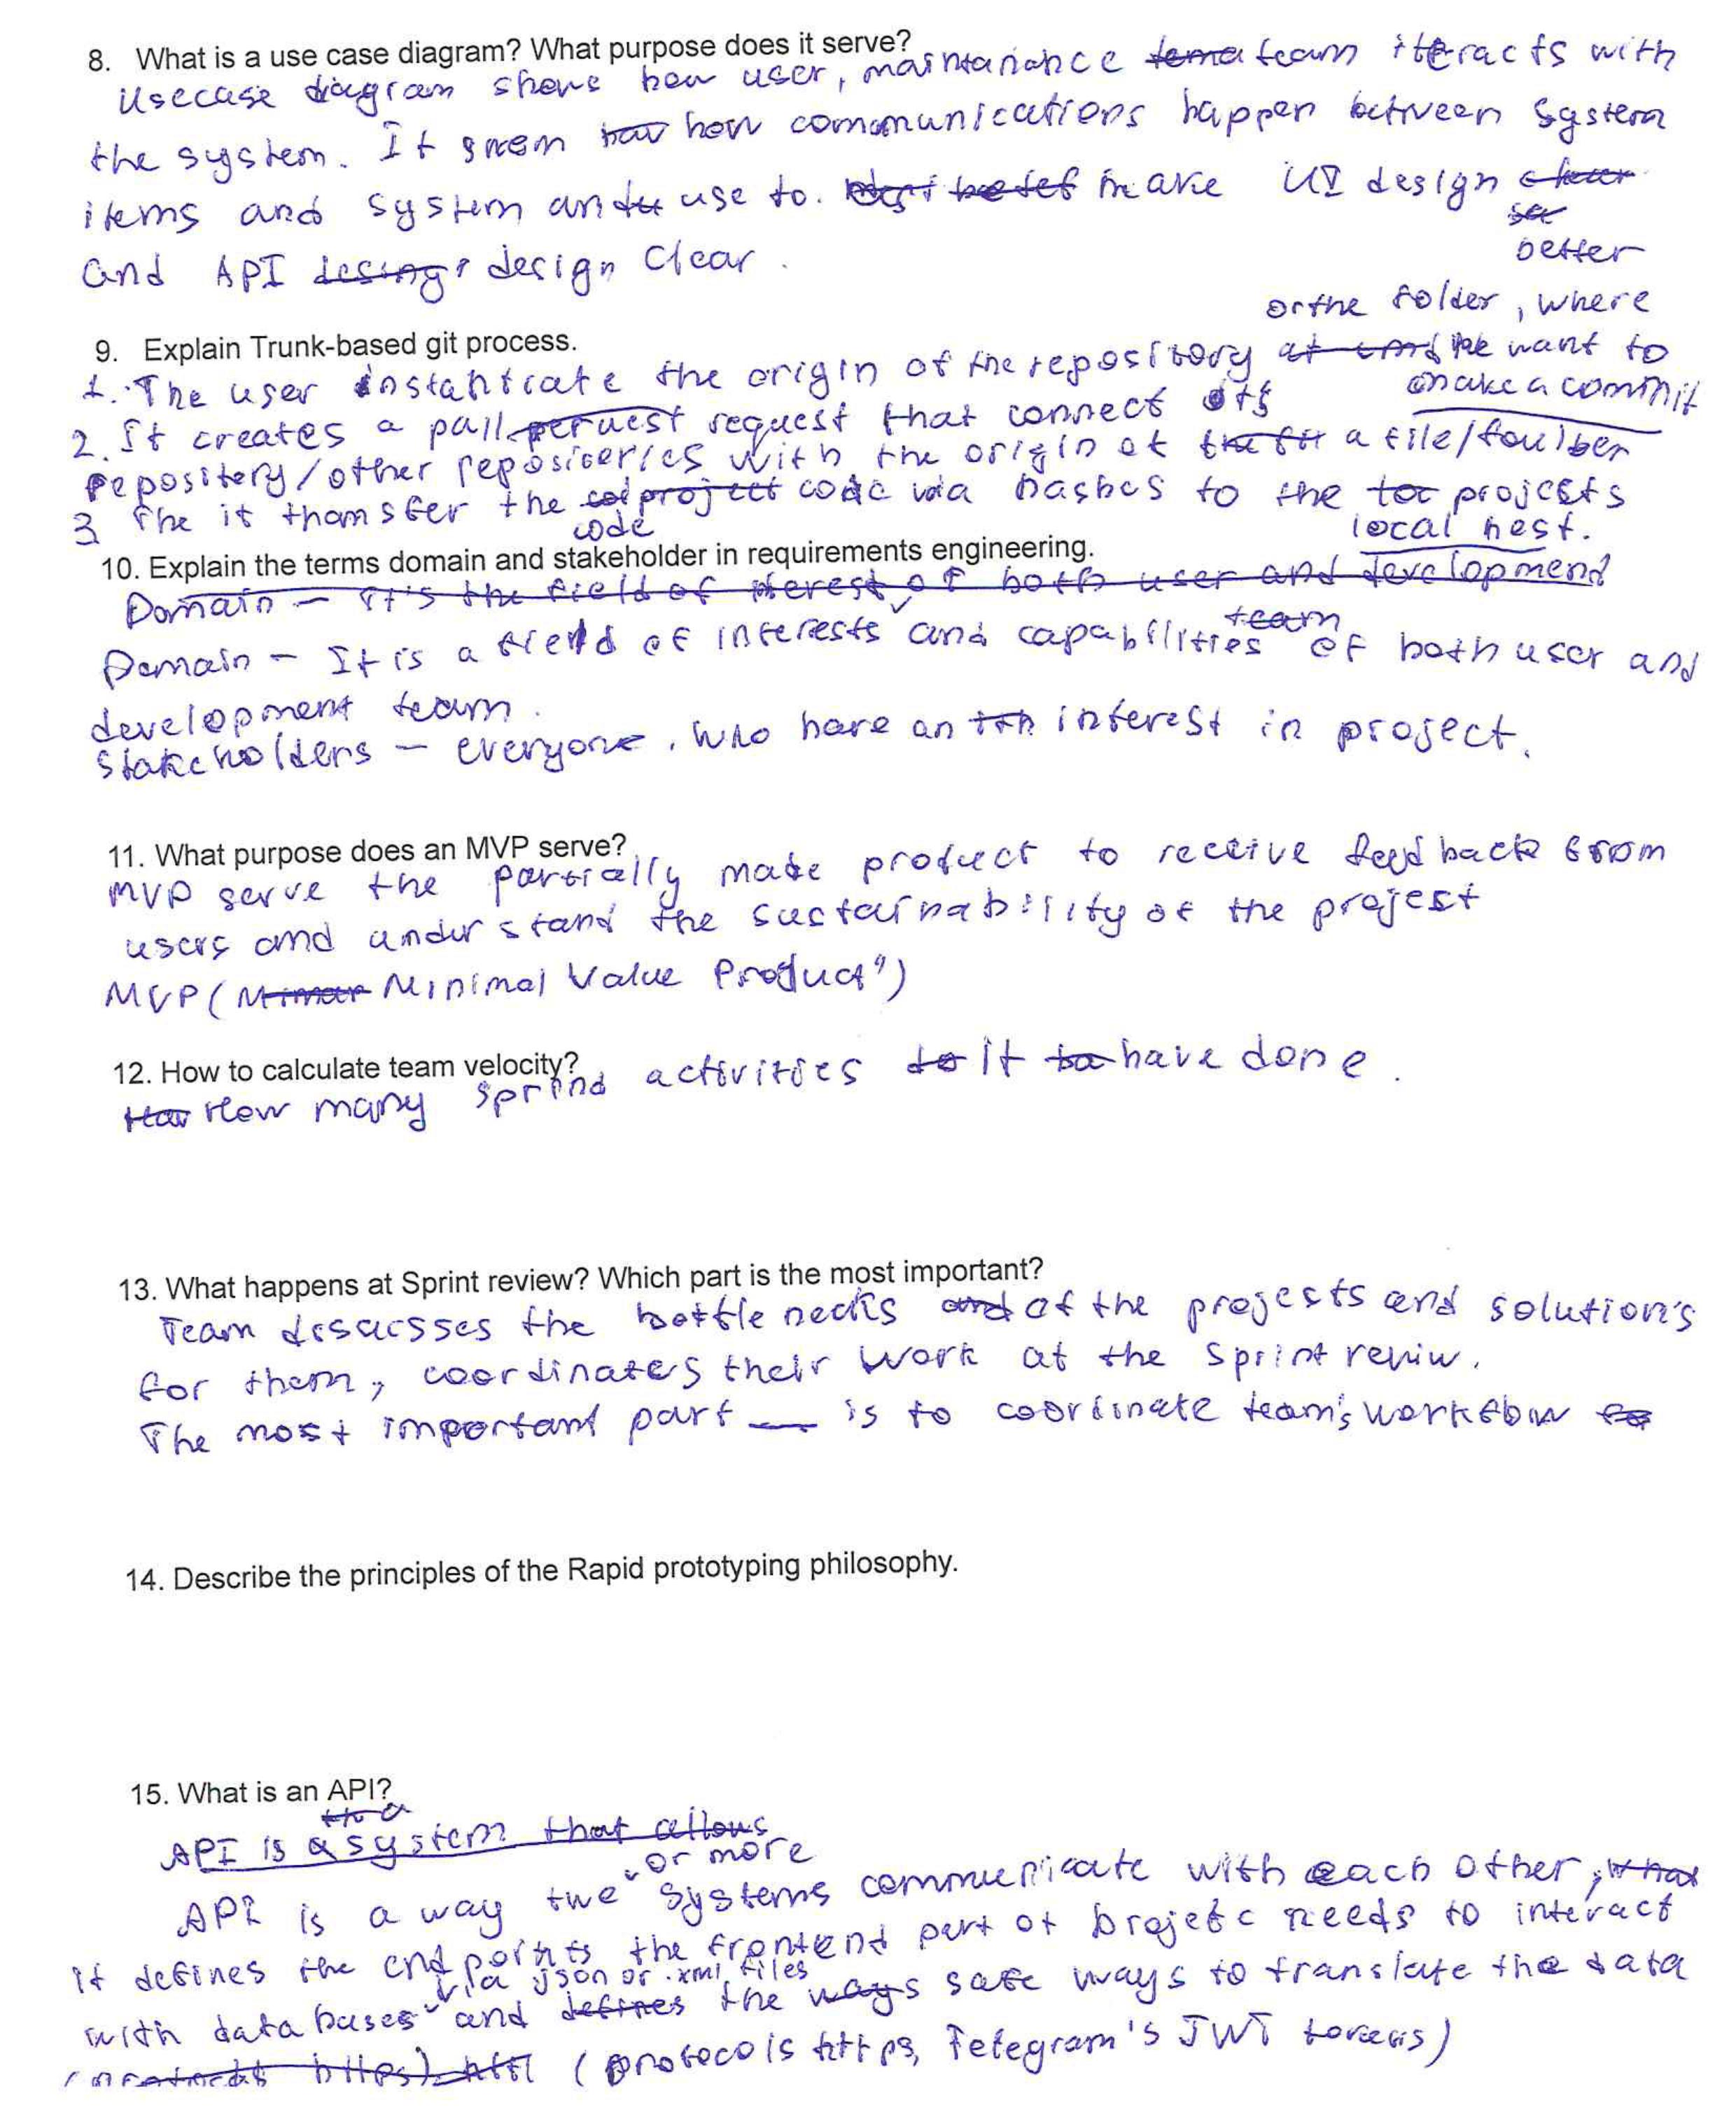 8. What is a use case diagram? What purpose does it serve?
Usecase diagram shows how user, maintanance team iteracts with
the system. It shem how commmunications happen between System
items and system and use to. make UI design
better
and API design Clear.
9. Explain Trunk-based git process.
or the folder, where
1. The user instantiate the origin of the repository we want to
make a commit
2. It creates a pull request that connect its
repository/other reposiveries with the origin of a file/foulber
3 The it thamsfer the code via hashes to the projects
code
local hest.
10. Explain the terms domain and stakeholder in requirements engineering.
Domain – It's the field of iterest of both user and developmend
team
Domain – It is a field of interests and capabilities of both user and
development team.
Stakeholders – everyone, who have an interest in project.
11. What purpose does an MVP serve?
MVP serve the partially made product to receive feedback from
users and understand the sustainability of the project
MVP (Minimal Value Product")
12. How to calculate team velocity?
How many sprind activities it have done.
13. What happens at Sprint review? Which part is the most important?
Team disscusses the bottle necks of the projects and solution's
for them, coordinates their work at the sprint reviw.
The most important part — is to coordinate team's workflow
14. Describe the principles of the Rapid prototyping philosophy.
15. What is an API?
API is a system that allows
or more
API is a way two systems communicate with each other,
it defines the endpoints the frontend part of projetc needs to interact
via json or .xml files
with databases and the safe ways to translate the data
(protocols https, Telegram's JWT tokens)